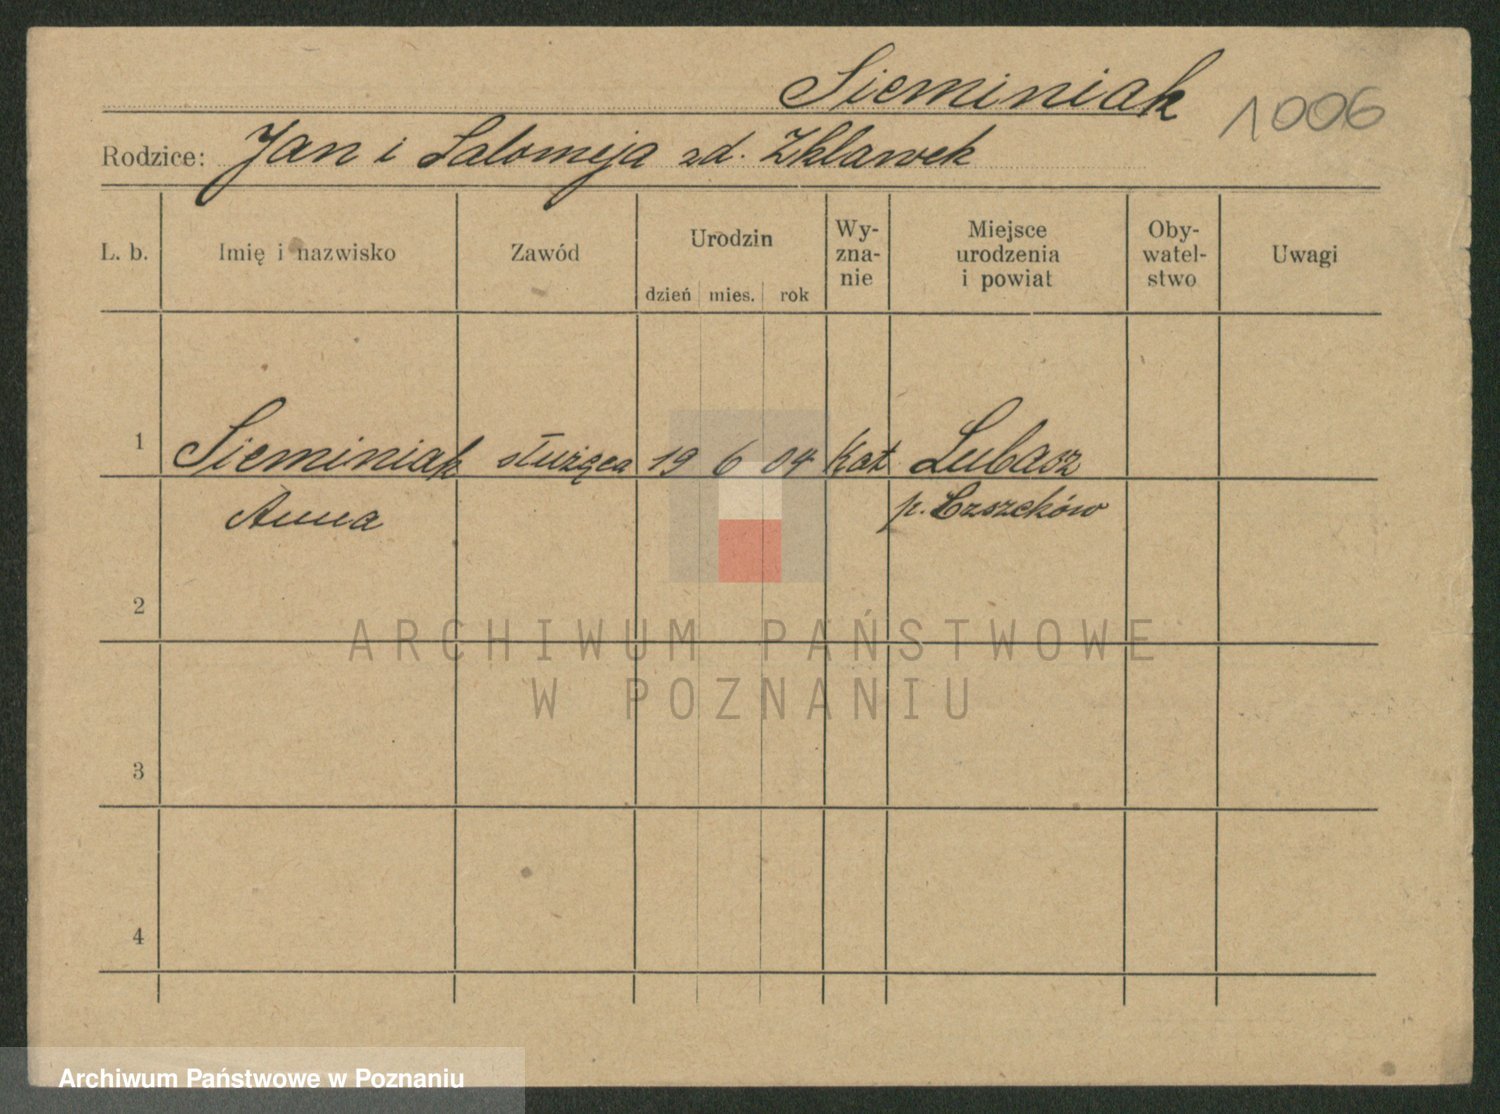 Sieminiak 1006
Rodzice: Jan i Salomeja zd.
L. b. Imię i nazwisko Zawód Urodzin dzień mies. rok Wy-zna-nie Miejsce urodzenia i powiat Oby-watel-stwo Uwagi
1 Sieminiak służąca 19 6 04 Kat Lubasz
Anna p.
2
ARCHIWUM PAŃSTWOWE
W POZNANIU
3
4
Archiwum Państwowe w Poznaniu